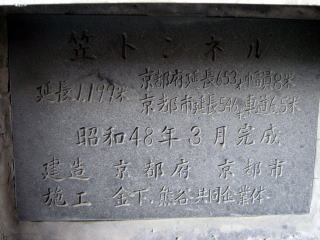 笠トンネル
延長1,199米 京都府延長653米 巾員8米
京都市延長546米 車道6.5米
昭和48年3月完成
建造 京都府 京都市
施工 金下、熊谷共同企業体